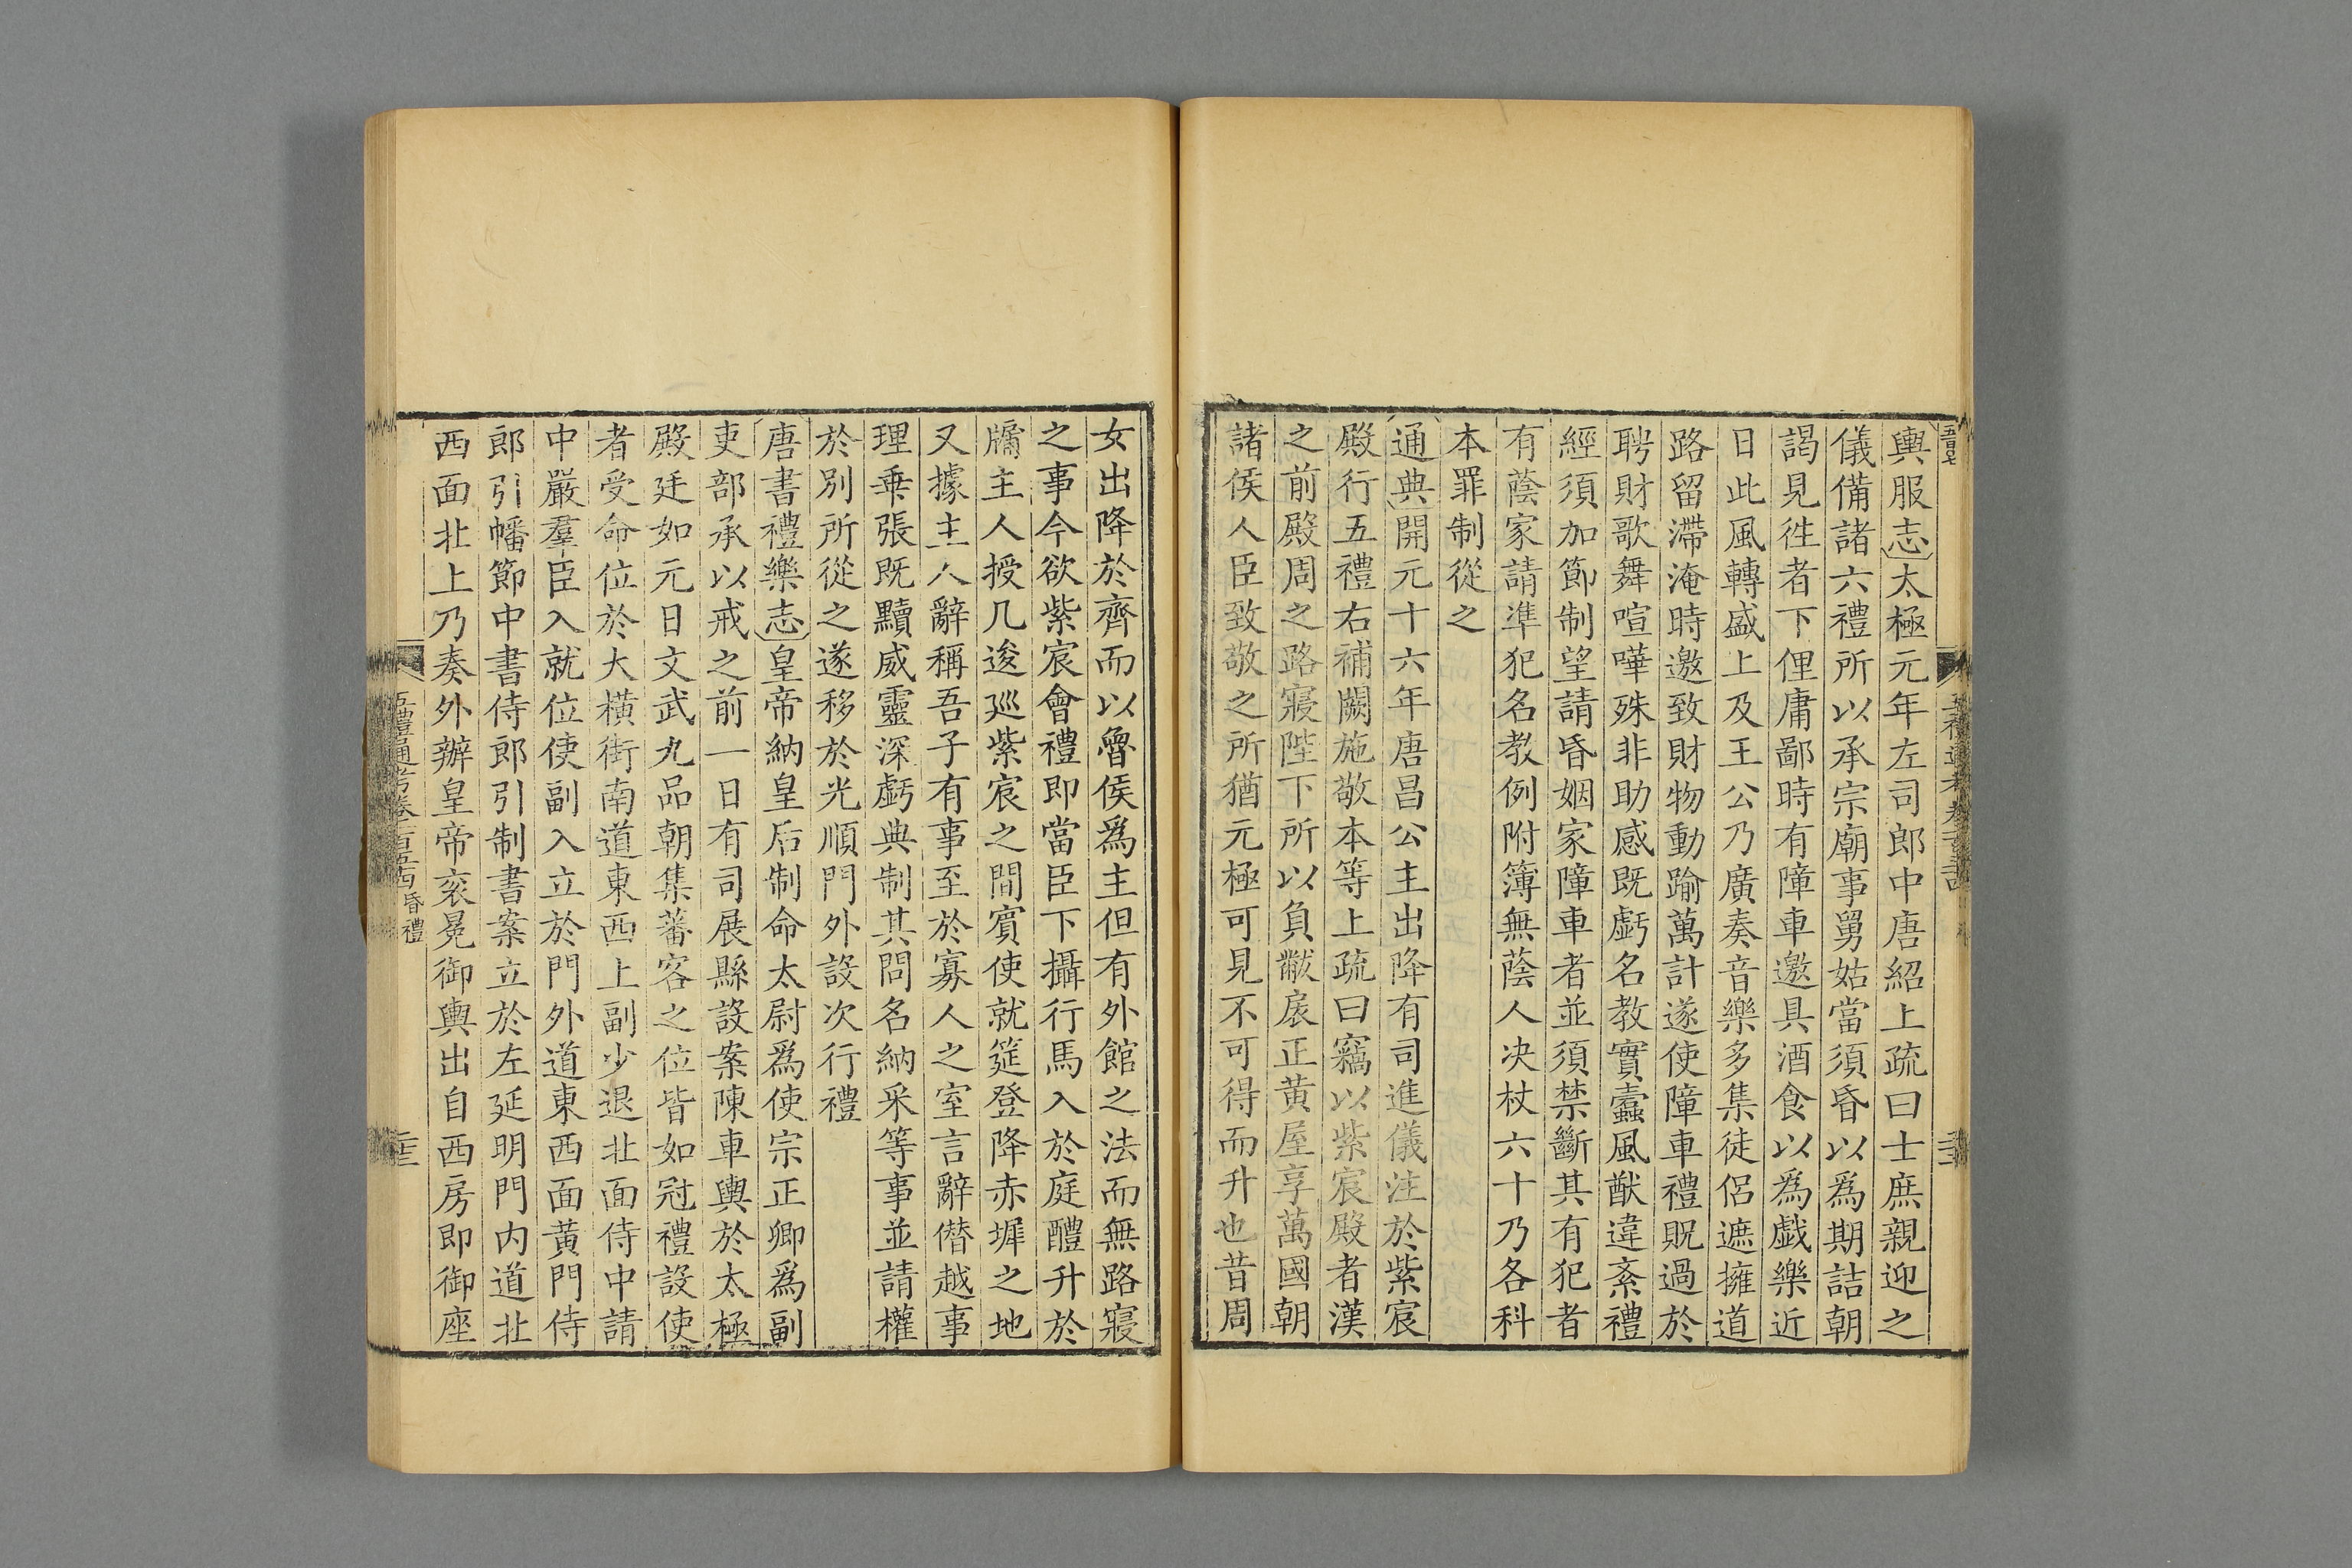 輿服志太極元年左司郎中唐紹上疏曰士庶親迎之
儀備諸六禮所以承宗廟事舅姑當須昏以爲期詰朝
謁見徃者下俚庸鄙時有障車邀具酒食以爲戯樂近
日此風轉盛上及王公乃廣奏音樂多集徒侶遮擁道
路留滯淹時邀致財物動踰萬計遂使障車禮貺過於
聘財歌舞喧嘩殊非助感既虧名教實蠹風猷違紊禮
經須加節制望請昏姻家障車者並須禁斷其有犯者
有蔭家請準犯名教例附簿無蔭人决杖六十乃各科
本罪制從之
通典開元十六年唐昌公主出降有司進儀注於紫宸
殿行五禮右補闕施敬本等上疏曰竊以紫宸殿者漢
之前殿周之路寢陛下所以負黻扆正黄屋享萬國朝
諸侯人臣致敬之所猶元極可見不可得而升也昔周
女出降於齊而以魯侯爲主但有外館之法而無路寢
之事今欲紫宸會禮即當臣下攝行馬入於庭醴升於
牖主人授几逡廵紫宸之間賓使就筵登降赤墀之地
又據主人辭稱吾子有事至於寡人之室言辭僭越事
理乗張既黷威靈深虧典制其問名納采等事並請權
於別所從之遂移於光順門外設次行禮
唐書禮樂志皇帝納皇后制命太尉爲使宗正卿爲副
吏部承以戒之前一日有司展縣設案陳車輿於太極
殿廷如元日文武九品朝集蕃客之位皆如冠禮設使
者受命位於大横街南道東西上副少退北面侍中請
中嚴羣臣入就位使副入立於門外道東西面黃門侍
郎引幡節中書侍郎引制書案立於左延明門内道北
西面北上乃奏外辦皇帝衮冕御輿出自西房即御座
五禮通考卷一百五十四 昏禮